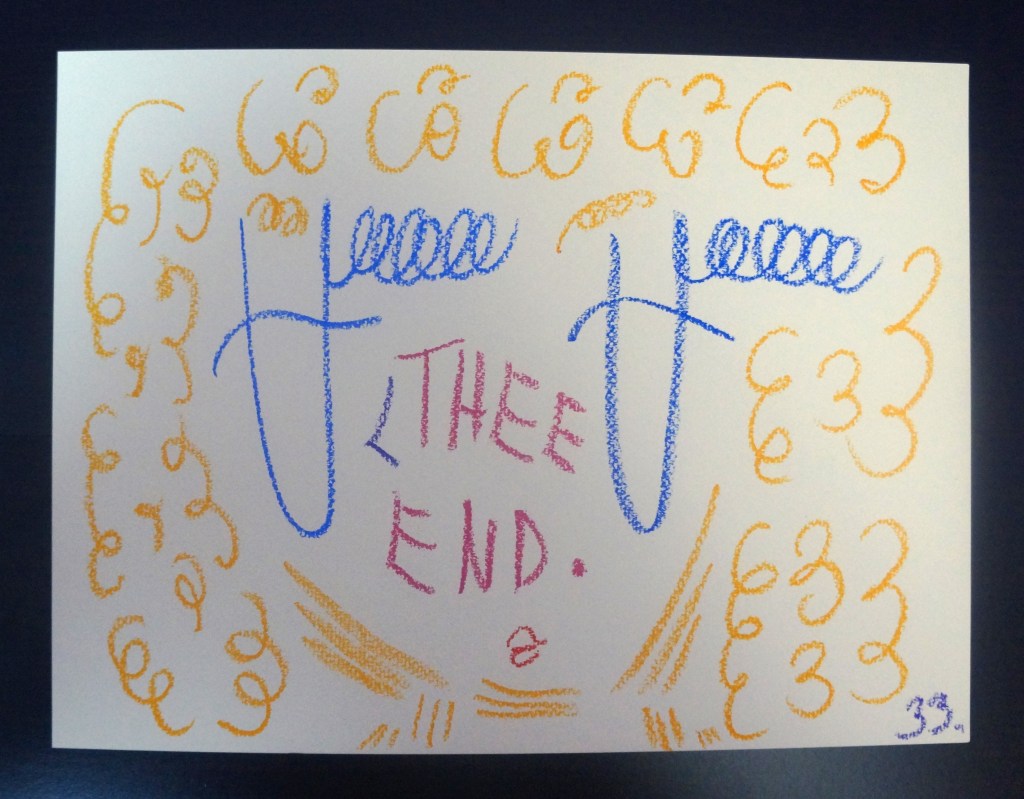 THEE
END.
33.